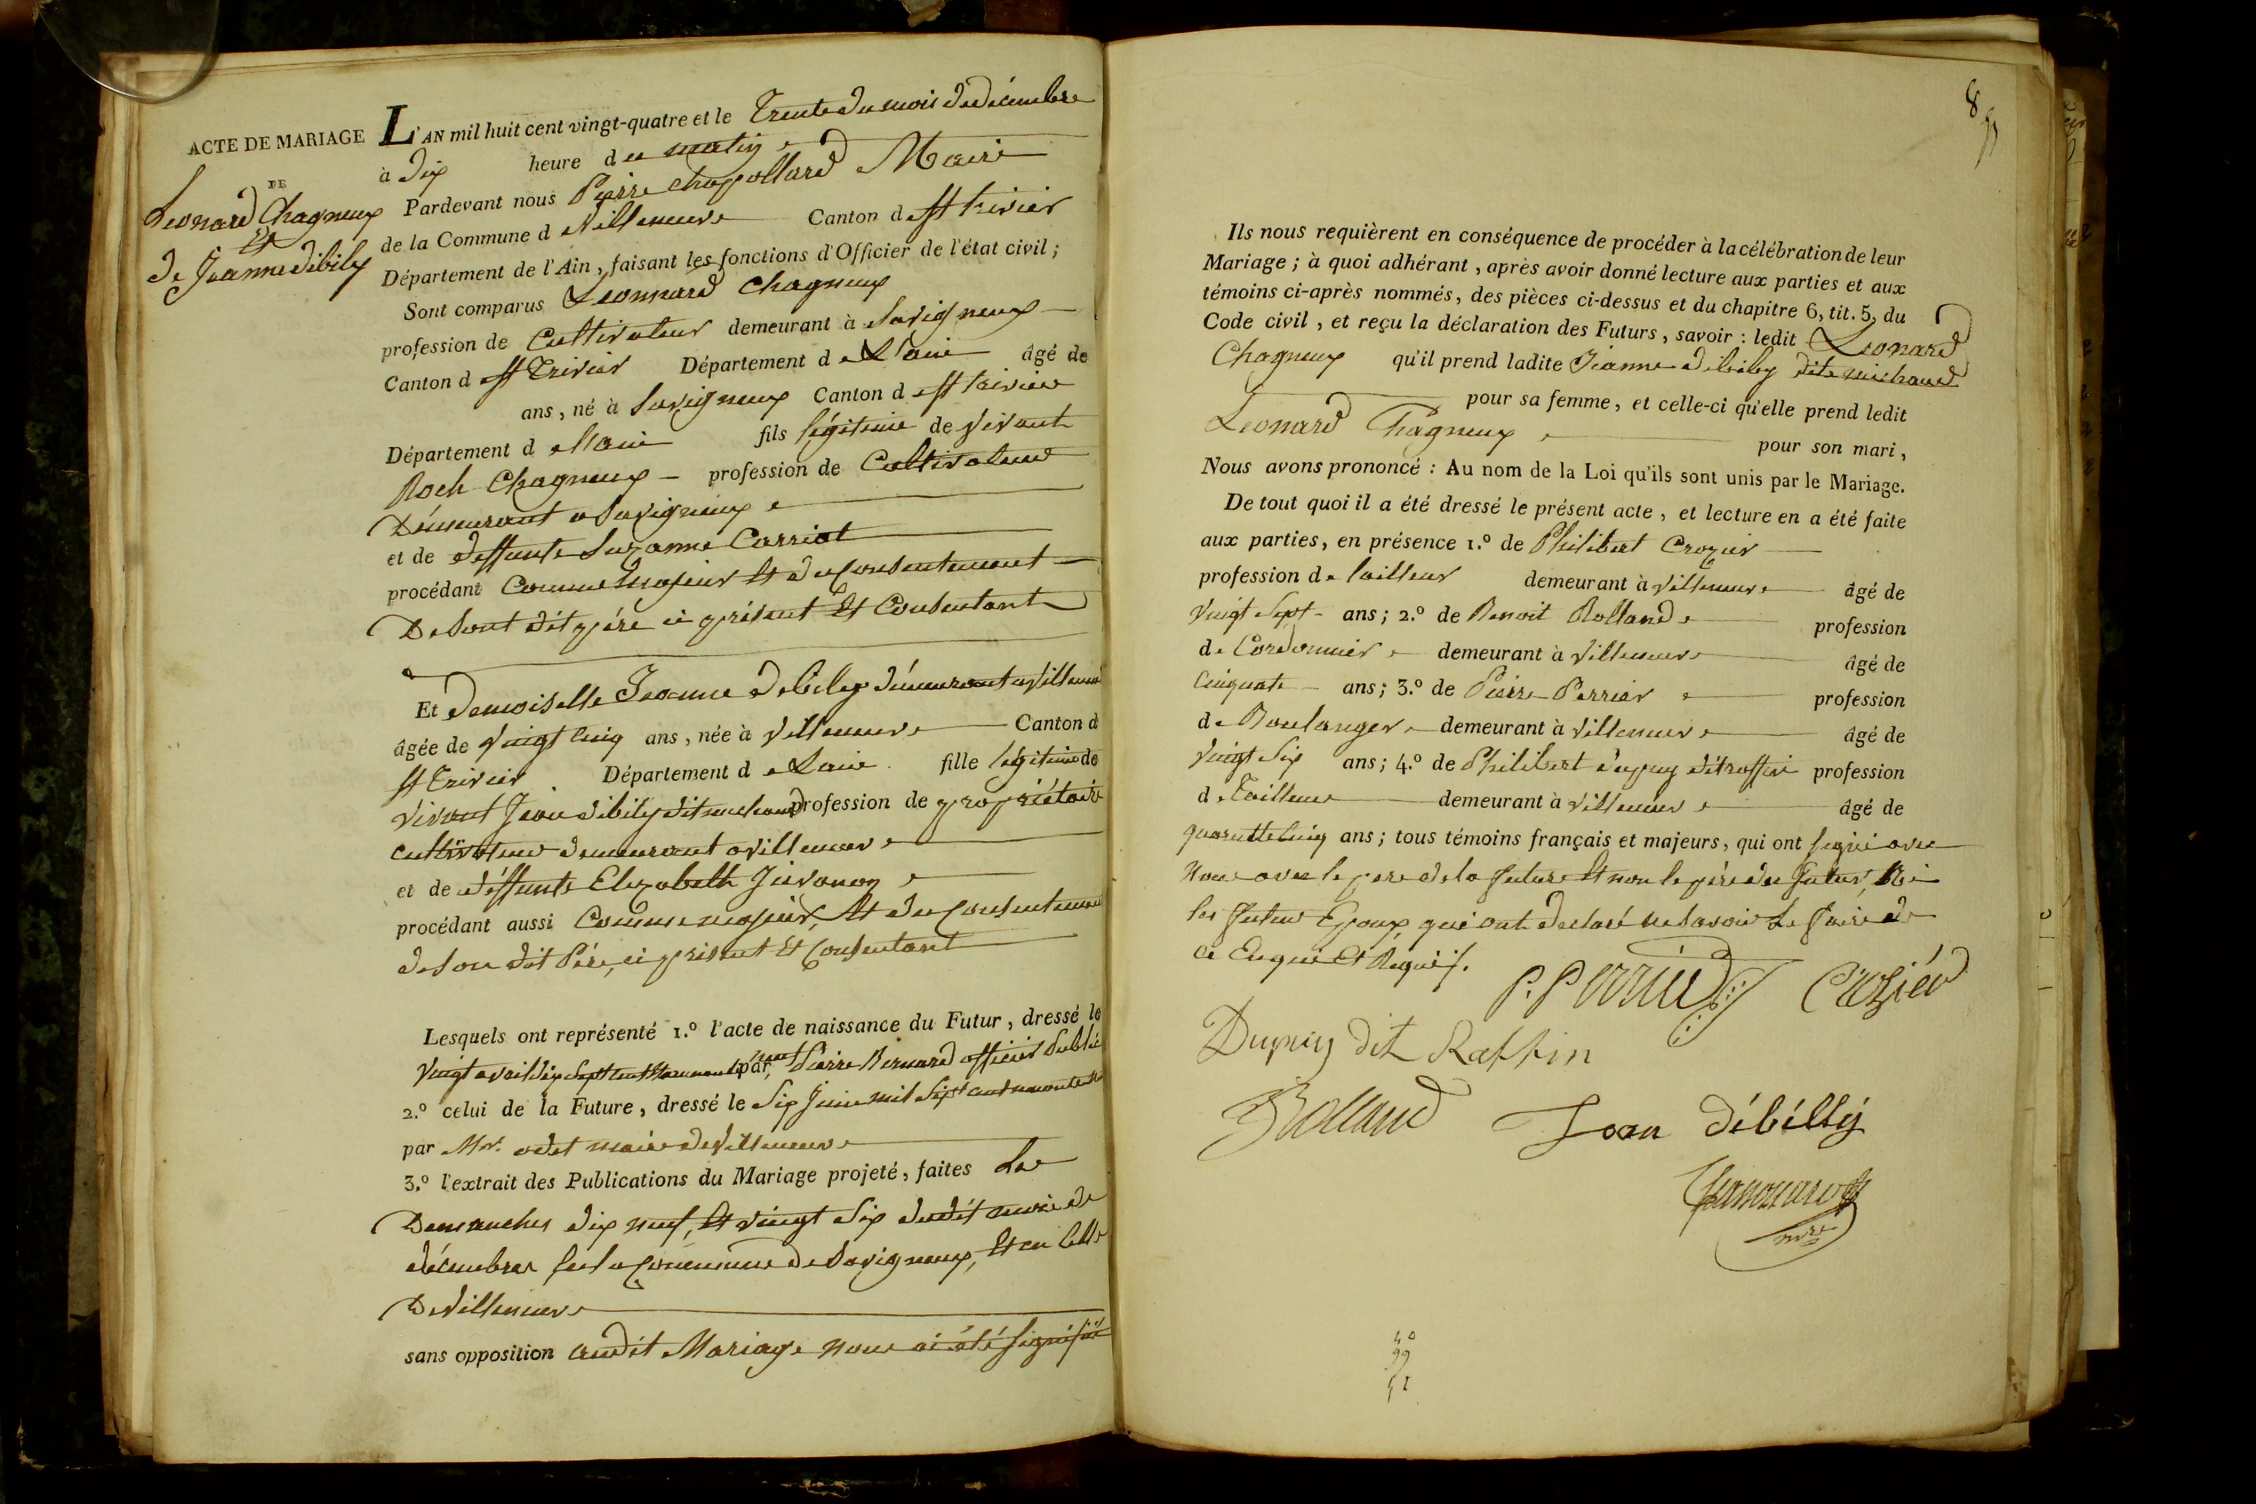 ACTE DE MARIAGE
DE
Leonard Chagneux
Et
de Jeanne debily
L'AN mil huit cent vingt-quatre et le Trente du mois de décembre
à dix heure du matin
Pardevant nous Pierre Chapollard Maire
de la Commune de Villeneuve Canton de St trivier
Département de l'Ain, faisant les fonctions d'Officier de l'état civil ;
Sont comparus Leonnard Chagneux
profession de Cultivateur demeurant à Savigneux
Canton de St Trivier Département de L'ain âgé de
ans, né à Savigneux Canton de St trivier
Département de l'ain fils légitime de vivant
Roch Chagneux profession de Cultivateur
Demeurant a Savigneux
et de deffunte Suzanne Carriot
procédant Comme majeur Et du Consentement
De Sont dit père ci présent Et Consentant
Et Demoiselle Jeanne debily demeurant a Villeneuve
âgée de vingt cinq ans, née à Villeneuve Canton de
St Trivier Département de Lain fille légitime de
vivant Jean debily dit michaud profession de propriétaire
cultivateur demeurant a villeneuve
et de deffunte Elizabeth Juvanon
procédant aussi Comme majeur, Et du Consentement
de Son dit Père, ci présent Et Consentant
Lesquels ont représenté 1.º l'acte de naissance du Futur, dressé le
vingt avril dix Sept cent par Pierre Bernard officier Public
2.º celui de la Future, dressé le Six Juin mil Sept cent
par Mr. odet maire de Villeneuve
3.º l'extrait des Publications du Mariage projeté, faites Les
Demanches dix neuf, Et vingt Six dudit mois de
décembre Sur la Commune de Savigneux, Et en Celle
De Villeneuve
sans opposition audit Mariage nous ai été Signifié
8
Ils nous requièrent en conséquence de procéder à la célébration de leur
Mariage ; à quoi adhérant, après avoir donné lecture aux parties et aux
témoins ci-après nommés, des pièces ci-dessus et du chapitre 6, tit. 5, du
Code civil, et reçu la déclaration des Futurs, savoir : ledit Leonard
Chagneux qu'il prend ladite Jeanne debily dite michaud
pour sa femme, et celle-ci qu'elle prend ledit
Leonard Chagneux pour son mari,
Nous avons prononcé : Au nom de la Loi qu'ils sont unis par le Mariage.
De tout quoi il a été dressé le présent acte, et lecture en a été faite
aux parties, en présence 1.º de Philibert Crozier
profession de tailleur demeurant à villeneuve âgé de
vingt Sept ans ; 2.º de Benoit Rolland profession
de Cordonnier demeurant à villeneuve âgé de
Cinquante ans ; 3.º de Pierre Perrier profession
de Boulanger demeurant à villeneuve âgé de
vingt Six ans ; 4.º de Philibert dupuy dit raffin profession
de Tailleur demeurant à villeneuve âgé de
quarentte Cinq ans ; tous témoins français et majeurs, qui ont Signé avec
Nous avec le pere de la future Et non le père du futur, Ni
les futur Epoux qui ont declaré ne Savoir Le faire de
ce Enquis Et Requis.
P. Perrier Crozier
Dupuy dit Raffin
Rolland Jean débilly
mre